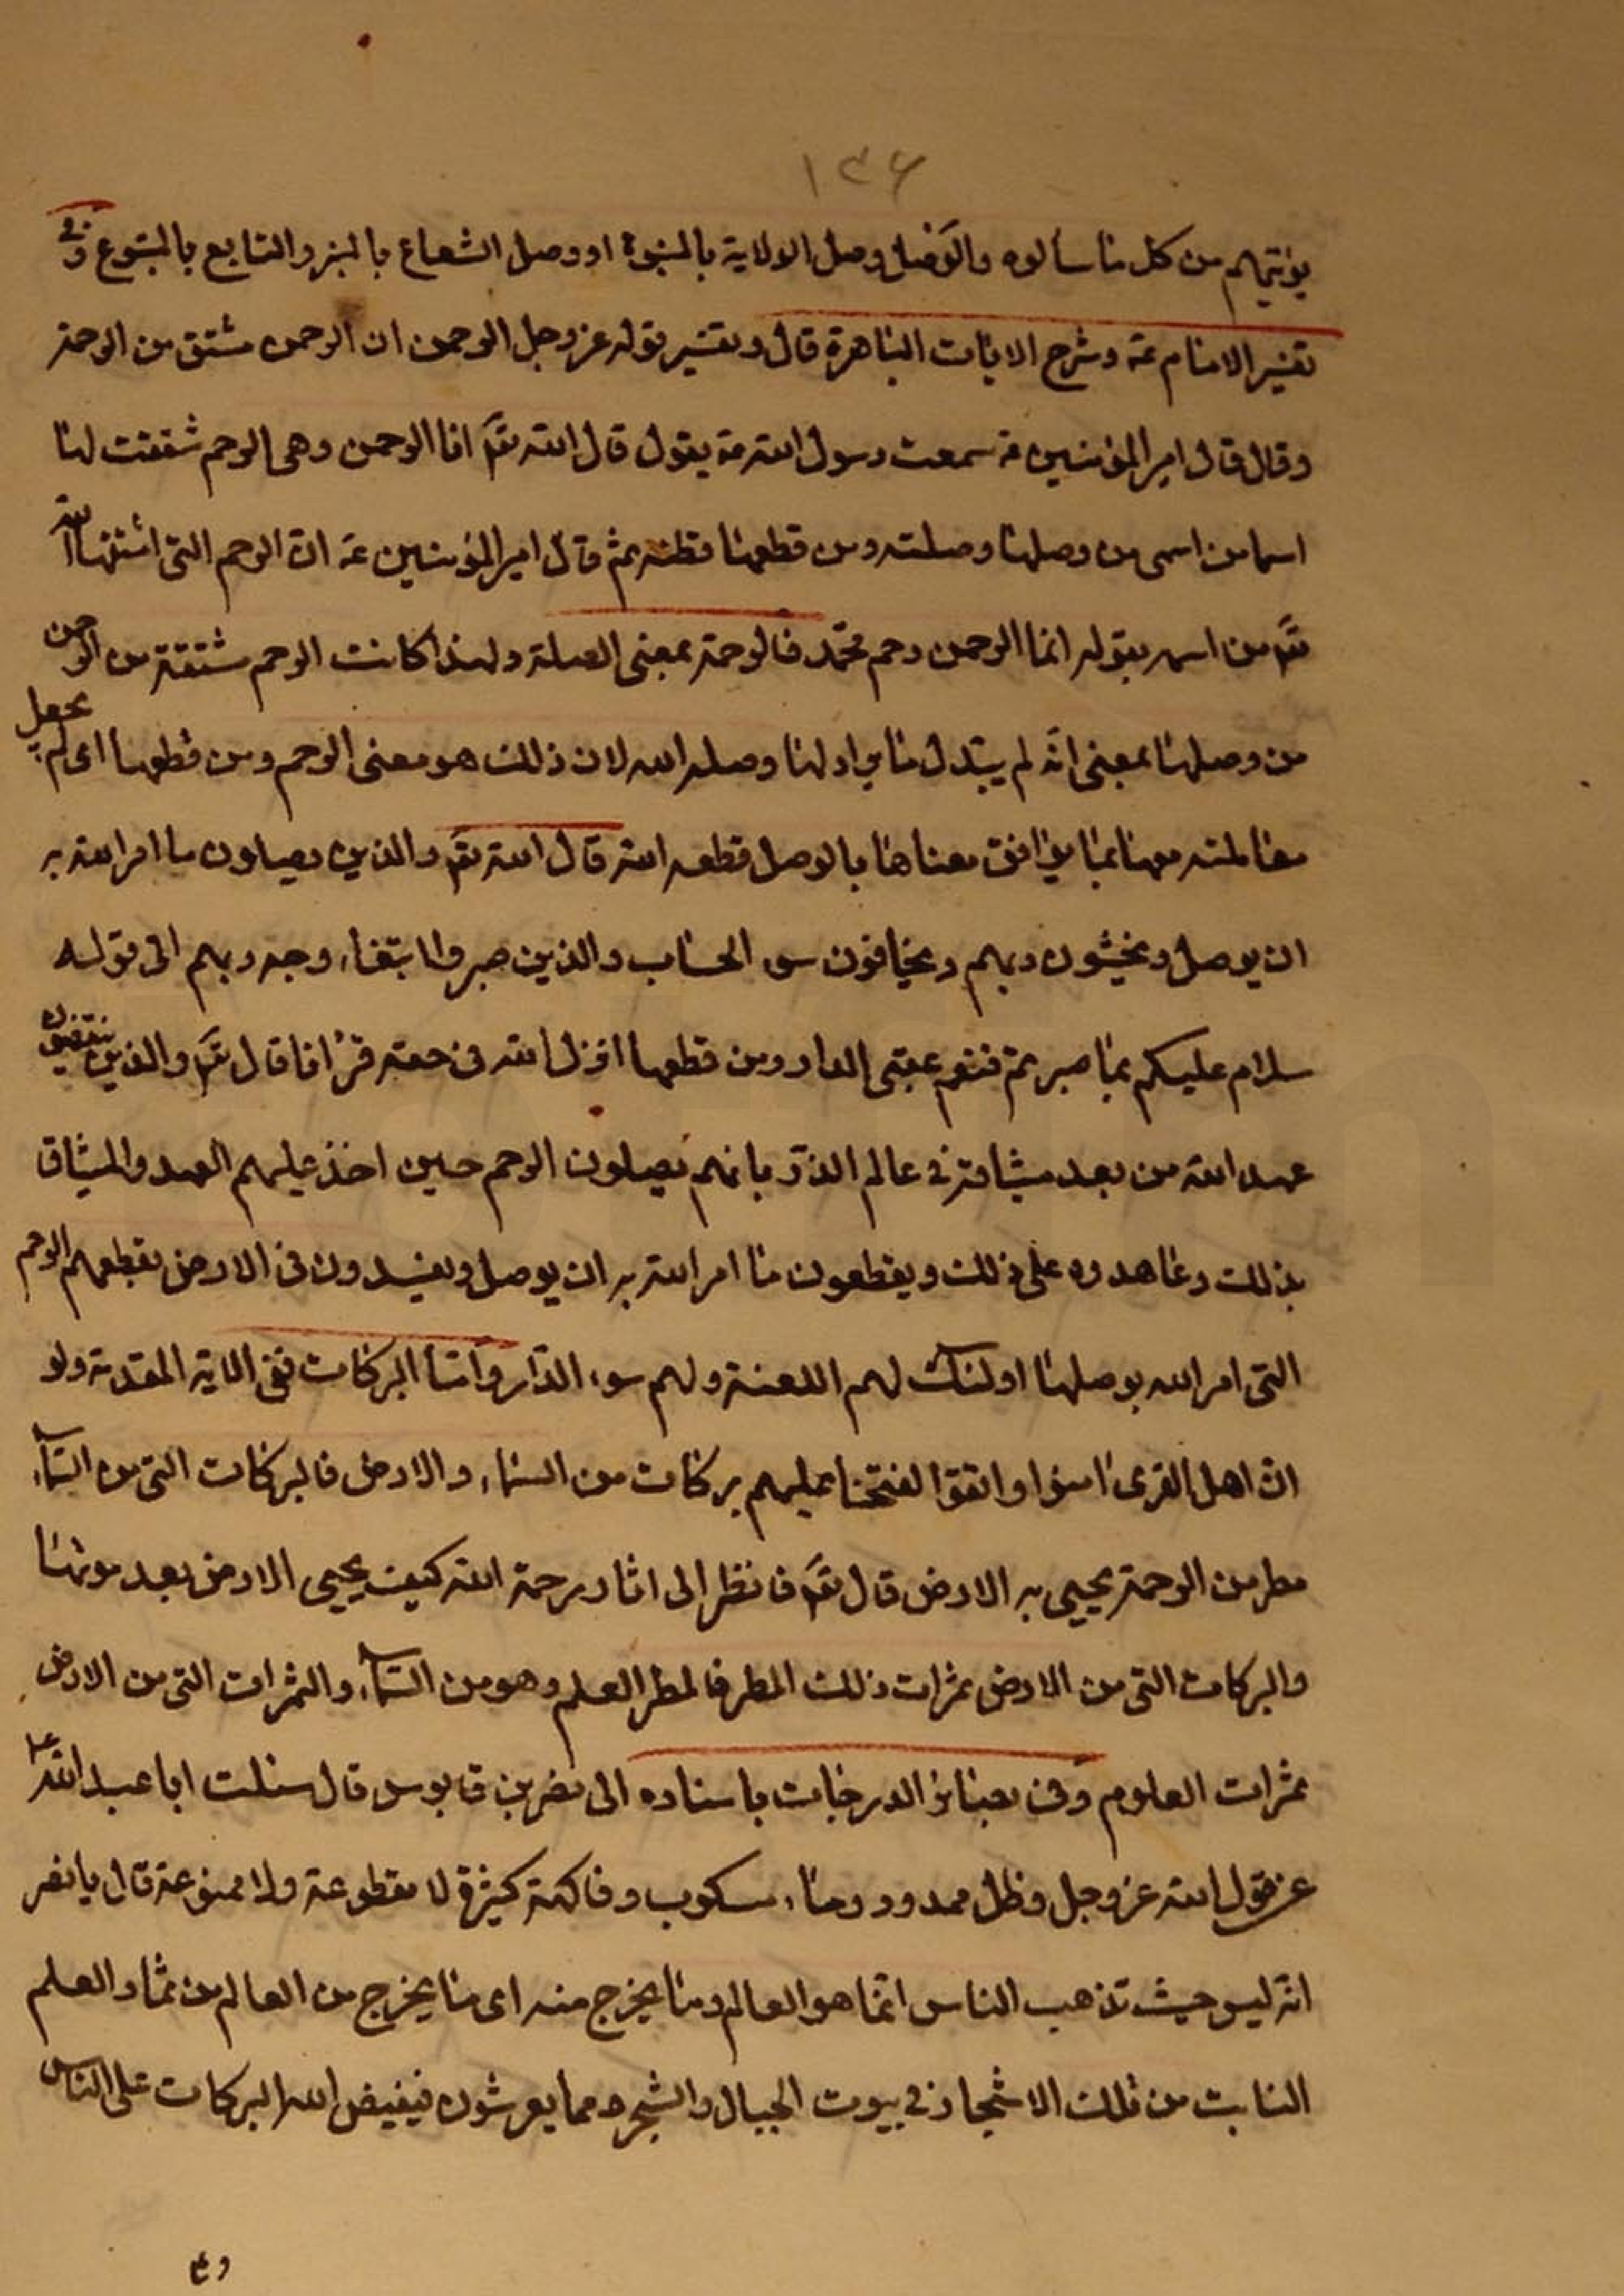 ١٣۶
يؤتيهم من كل ما سألوه والوصل وصل الولاية بالنبوة او وصل الشعاع بالمنير والتابع بالمتبوع وفي
تفسير الامام عه وشرح الايات الباهرة قال وتفسير قوله عز وجل الرحمن ان الرحمن مشتق من الرحمة
وقال قال امير المؤمنين عه سمعت رسول الله صه يقول قال الله تعم انا الرحمن وهى الرحم شققت لها
اسما من اسمى من وصلها وصلته ومن قطعها قطعته ثم قال امير المؤمنين عه ان الرحم التى اشتقها الله
تعم من اسمه بقوله انا الرحمن رحم محمد فالرحمة بمعنى الصلة ولهذا كانت الرحم مشتقة من الرحمن
من وصلها بمعنى انه لم يبتدل ما يراد لها وصله الله لان ذلك هو معنى الرحم ومن قطعها اى لم يجعل
معاملته معها بما يوافق معناها بالوصل قطعه الله قال الله تعم والذين يصلون ما امر الله به
ان يوصل ويخشون ربهم ويخافون سوء الحساب والذين صبروا ابتغاء وجه ربهم الى قوله
سلام عليكم بما صبرتم فنعم عقبى الدار ومن قطعها انزل الله فى حقه قرانا قال تعم والذين ينقضون
عهد الله من بعد ميثاقه في عالم الذر بانهم يصلون الرحم حين اخذ عليهم العهد والميثاق
بذلك وعاهدوه على ذلك ويقطعون ما امر الله به ان يوصل ويفسدون فى الارض بقطعهم الرحم
التى امر الله بوصلها اولئك لهم اللعنة ولهم سوء الدار وامّا البركات ففى الاية المقدمة ولو
ان اهل القرى امنوا واتقوا لفتحنا عليهم بركات من السماء والارض فالبركات التى من السماء
مطر من الرحمة يحيى به الارض قال تعم فانظر الى اثار رحمة الله كيف يحيى الارض بعد موتها
والبركات التى من الارض ثمرات ذلك المطر فالمطر العلم وهو من السماء والثمرات التى من الارض
ثمرات العلوم وفى بصائر الدرجات باسناده الى نصر بن قابوس قال سئلت ابا عبد الله ع
عن قول الله عز وجل وظل ممدود وماء مسكوب وفاكهة كثيرة لا مقطوعة ولا ممنوعة قال يا نصر
انه ليس حيث تذهب الناس انما هو العالم وما يخرج منه اى ما يخرج من العالم من ثمار العلم
النابت من تلك الاشجار في بيوت الجبال والشجر ومما يعرشون فيفيض الله البركات على الناس